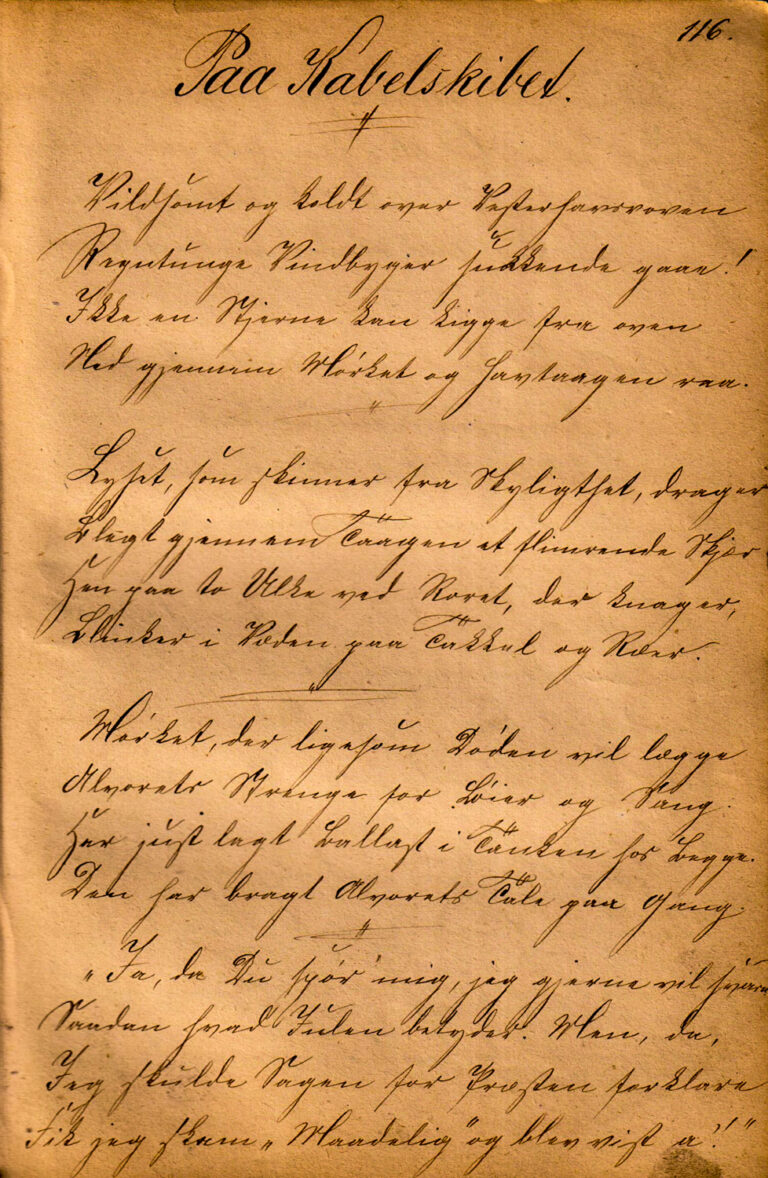 116.
Paa Kabelskibet.
Vildsomt og koldt over Vesterhavsvoven
Regntunge Vindbyger sukkende gaae!
Ikke en Stjerne kan kigge fra oven
Ned gjennem Mørket og Havtaagen raa.
Lyset, som skinner fra Skyligthet, drager
Blegt gjennem Taagen et flimrende Skjær
Hen paa to Ulke ved Roret, der knager,
Blinker i Væden paa Takkel og Ræer.
Mørket, der ligesom Døden vil lægge
Alvorets Strenge for Løier og Sang.
Har just lagt Ballast i Tanken hos Begge.
Den har bragt Alvorets Tale paa Gang.
"Ja, da Du spør' mig, jeg gjerne vil svare
Saadan hvad Julen betyder. Men, da,
Jeg skulde Sagen for Præsten forklare
Fik jeg skam "Maadelig" og blev vist a'!"